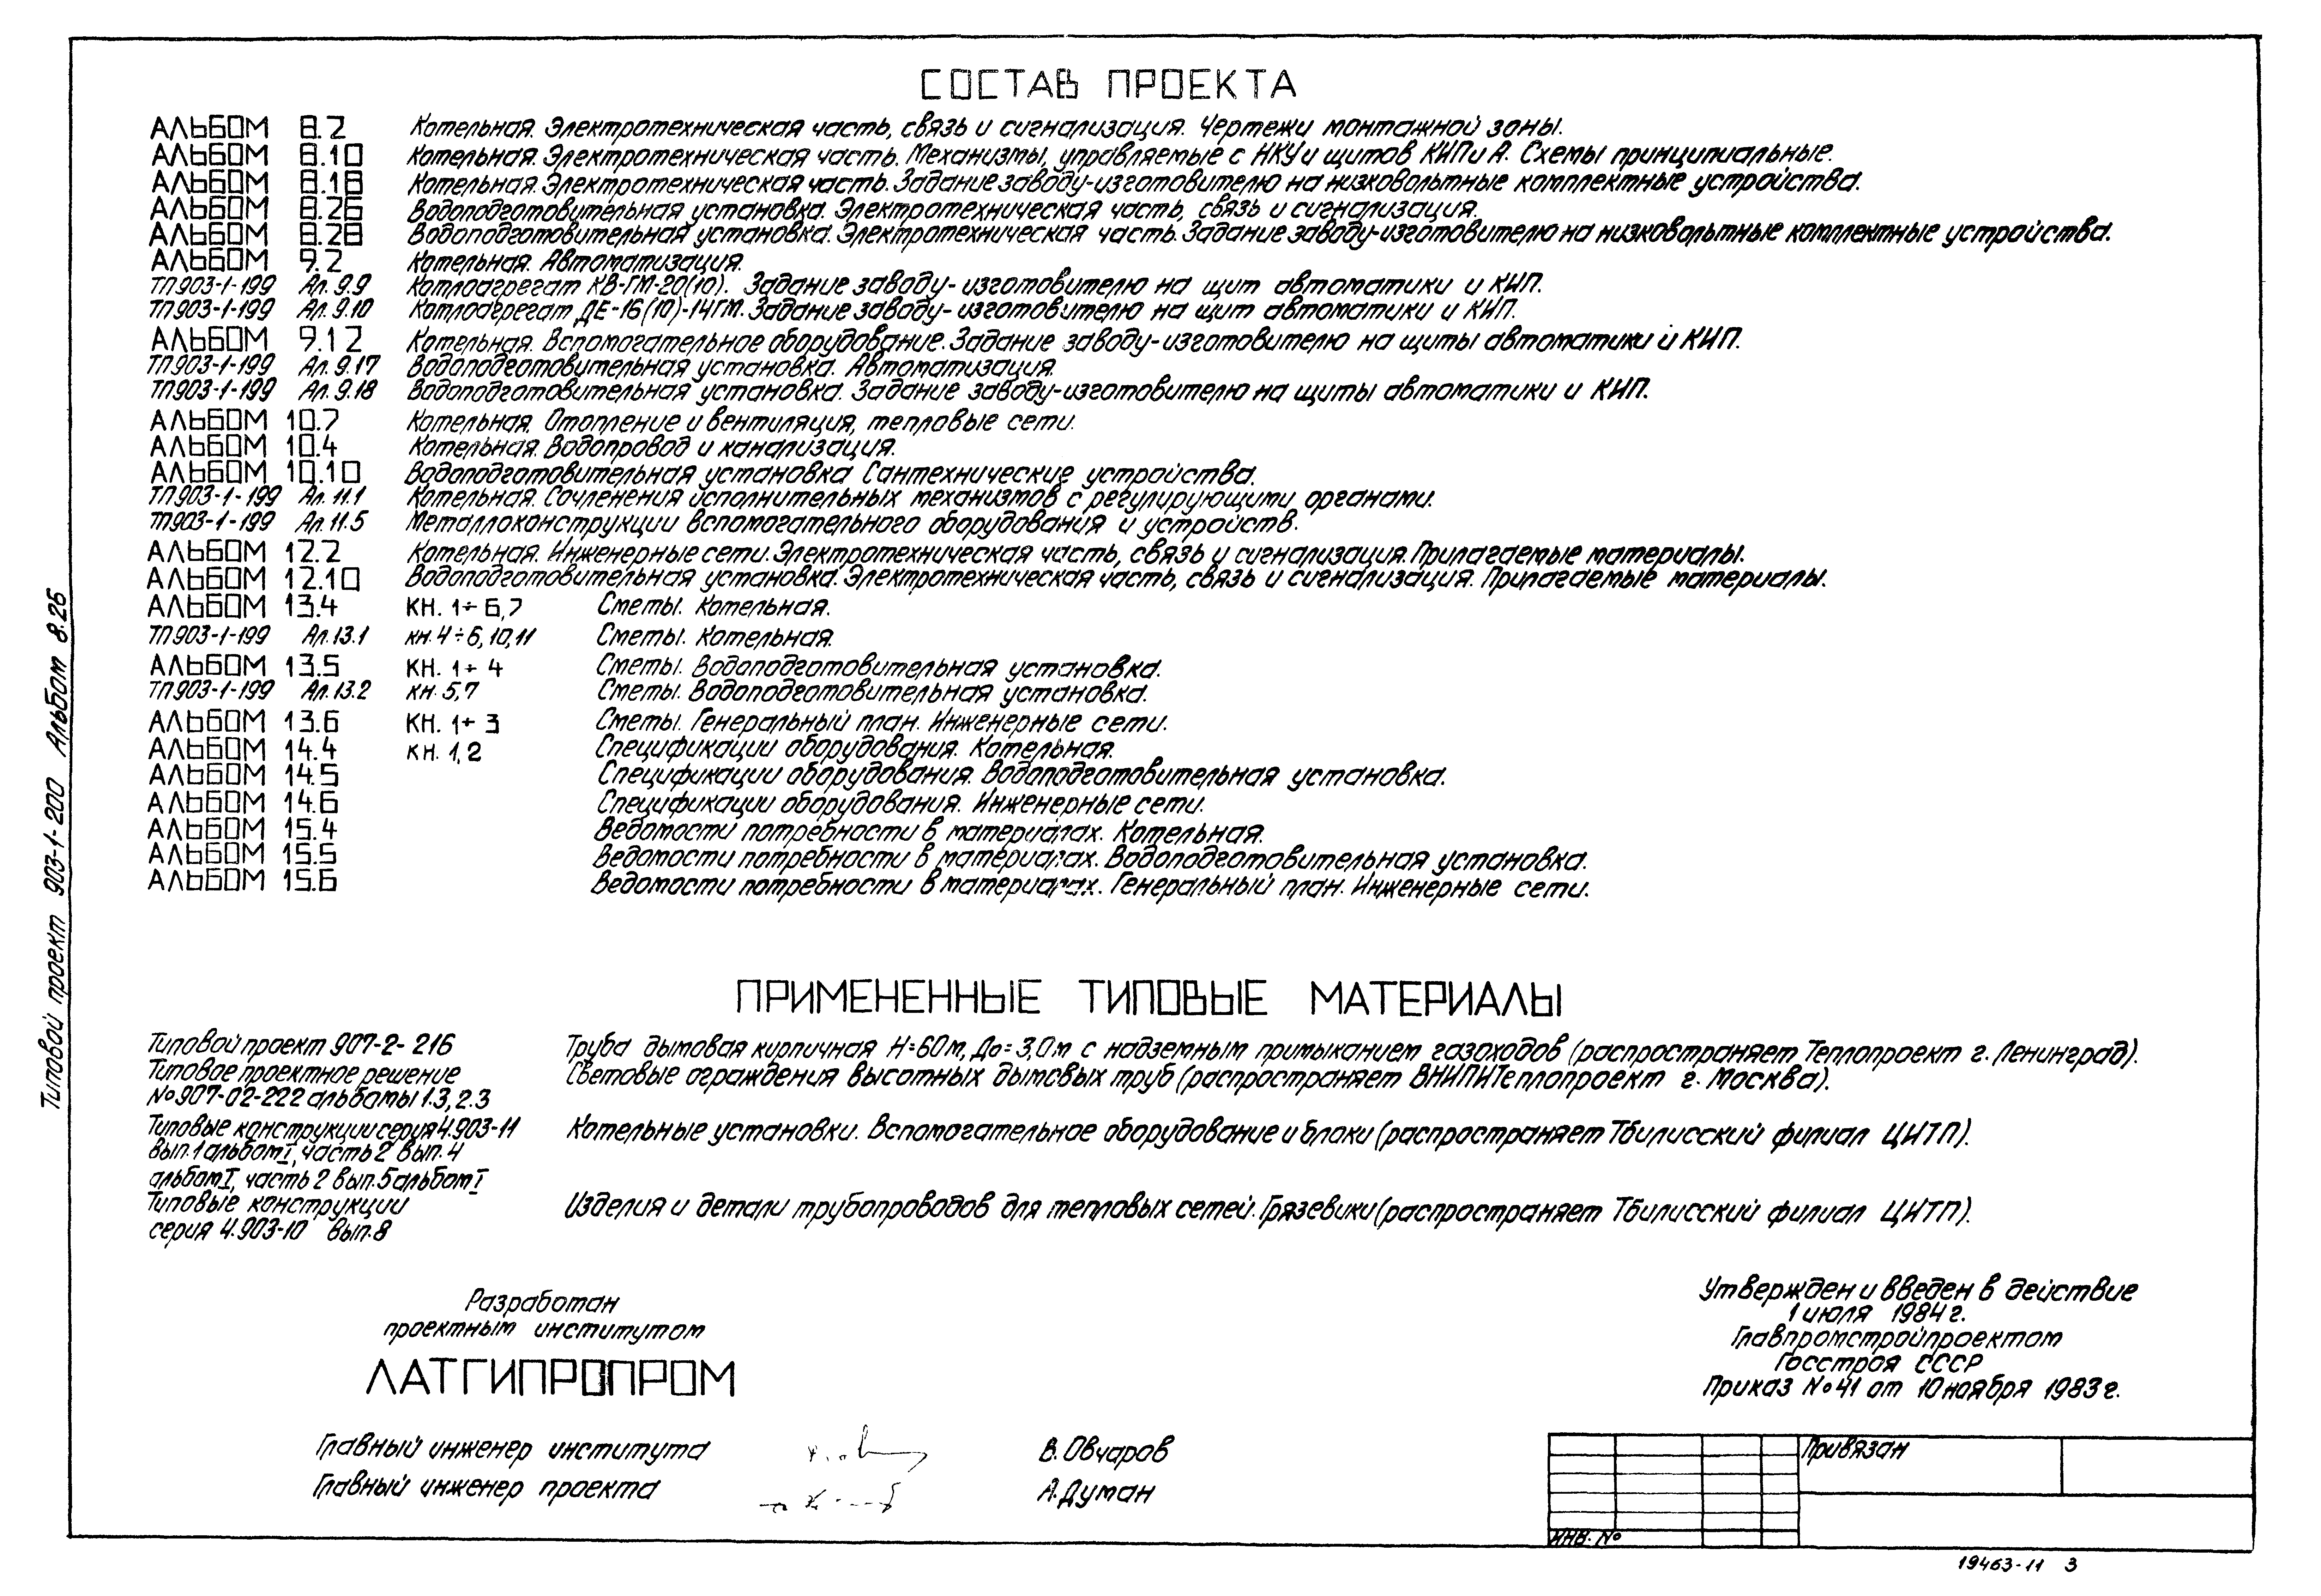 СОСТАВ ПРОЕКТА
АЛЬБОМ 8.2 Котельная. Электротехническая часть, связь и сигнализация. Чертежи монтажной зоны.
АЛЬБОМ 8.10 Котельная. Электротехническая часть. Механизмы, управляемые с НКУ и щитов КИП и А. Схемы принципиальные.
АЛЬБОМ 8.18 Котельная. Электротехническая часть. Задание заводу-изготовителю на низковольтные комплектные устройства.
АЛЬБОМ 8.26 Водоподготовительная установка. Электротехническая часть, связь и сигнализация.
АЛЬБОМ 8.28 Водоподготовительная установка. Электротехническая часть. Задание заводу-изготовителю на низковольтные комплектные устройства.
АЛЬБОМ 9.2 Котельная. Автоматизация.
ТП903-1-199 Ал. 9.9 Котлоагрегат КВ-ГМ-20(10). Задание заводу-изготовителю на щит автоматики и КИП.
ТП903-1-199 Ал. 9.10 Котлоагрегат ДЕ-16(10)-14ГМ. Задание заводу-изготовителю на щит автоматики и КИП.
АЛЬБОМ 9.12 Котельная. Вспомогательное оборудование. Задание заводу-изготовителю на щиты автоматики и КИП.
ТП903-1-199 Ал. 9.17 Водоподготовительная установка. Автоматизация.
ТП903-1-199 Ал. 9.18 Водоподготовительная установка. Задание заводу-изготовителю на щиты автоматики и КИП.
АЛЬБОМ 10.7 Котельная. Отопление и вентиляция, тепловые сети.
АЛЬБОМ 10.4 Котельная. Водопровод и канализация.
АЛЬБОМ 10.10 Водоподготовительная установка Сантехнические устройства.
ТП903-1-199 Ал. 11.1 Котельная. Сочленения исполнительных механизмов с регулирующими органами.
ТП903-1-199 Ал. 11.5 Металлоконструкции вспомогательного оборудования и устройств.
АЛЬБОМ 12.2 Котельная. Инженерные сети. Электротехническая часть, связь и сигнализация. Прилагаемые материалы.
АЛЬБОМ 12.10 Водоподготовительная установка. Электротехническая часть, связь и сигнализация. Прилагаемые материалы.
АЛЬБОМ 13.4 КН. 1÷6,7 Сметы. Котельная.
ТП903-1-199 Ал. 13.1 кн. 4÷6,10,11 Сметы. Котельная.
АЛЬБОМ 13.5 КН. 1÷4 Сметы. Водоподготовительная установка.
ТП903-1-199 Ал. 13.2 кн. 5,7 Сметы. Водоподготовительная установка.
АЛЬБОМ 13.6 КН. 1÷3 Сметы. Генеральный план. Инженерные сети.
АЛЬБОМ 14.4 КН. 1,2 Спецификации оборудования. Котельная.
АЛЬБОМ 14.5 Спецификации оборудования. Водоподготовительная установка.
АЛЬБОМ 14.6 Спецификации оборудования. Инженерные сети.
АЛЬБОМ 15.4 Ведомости потребности в материалах. Котельная.
АЛЬБОМ 15.5 Ведомости потребности в материалах. Водоподготовительная установка.
АЛЬБОМ 15.6 Ведомости потребности в материалах. Генеральный план. Инженерные сети.
Типовой проект 903-1-200 Альбом 8.26
ПРИМЕНЕННЫЕ ТИПОВЫЕ МАТЕРИАЛЫ
Типовой проект 907-2-216 Труба дымовая кирпичная Н=60м, До=3,0м с надземным примыканием газоходов (распространяет Теплопроект г. Ленинград).
Типовое проектное решение Световые ограждения высотных дымовых труб (распространяет ВНИПИТеплопроект г. Москва).
№907-02-222 альбомы 1.3, 2.3
Типовые конструкции серия 4.903-11 Котельные установки. Вспомогательное оборудование и блоки (распространяет Тбилисский филиал ЦИТП).
вып. 1 альбом I, часть 2 вып. 4
альбом I, часть 2 вып. 5 альбом I
Типовые конструкции Изделия и детали трубопроводов для тепловых сетей. Грязевики (распространяет Тбилисский филиал ЦИТП).
серия 4.903-10 вып. 8
Разработан
проектным институтом
ЛАТГИПРОПРОМ
Главный инженер института В. Овчаров
Главный инженер проекта А. Думан
Утвержден и введен в действие
1 июля 1984 г.
Главпромстройпроектом
Госстроя СССР
Приказ №41 от 10 ноября 1983 г.
Привязан
ИНВ. №
19463-11 3